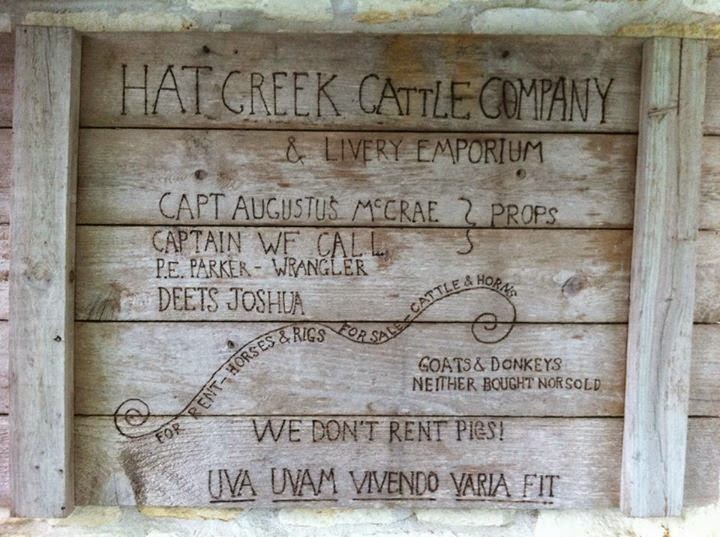 HAT CREEK CATTLE COMPANY
& LIVERY EMPORIUM
CAPT AUGUSTUS McCRAE } PROPS
CAPTAIN WF CALL
P.E. PARKER - WRANGLER
DEETS JOSHUA
FOR RENT - HORSES & RIGS FOR SALE - CATTLE & HORNS
GOATS & DONKEYS
NEITHER BOUGHT NOR SOLD
WE DON'T RENT PIGS!
UVA UVAM VIVENDO VARIA FIT